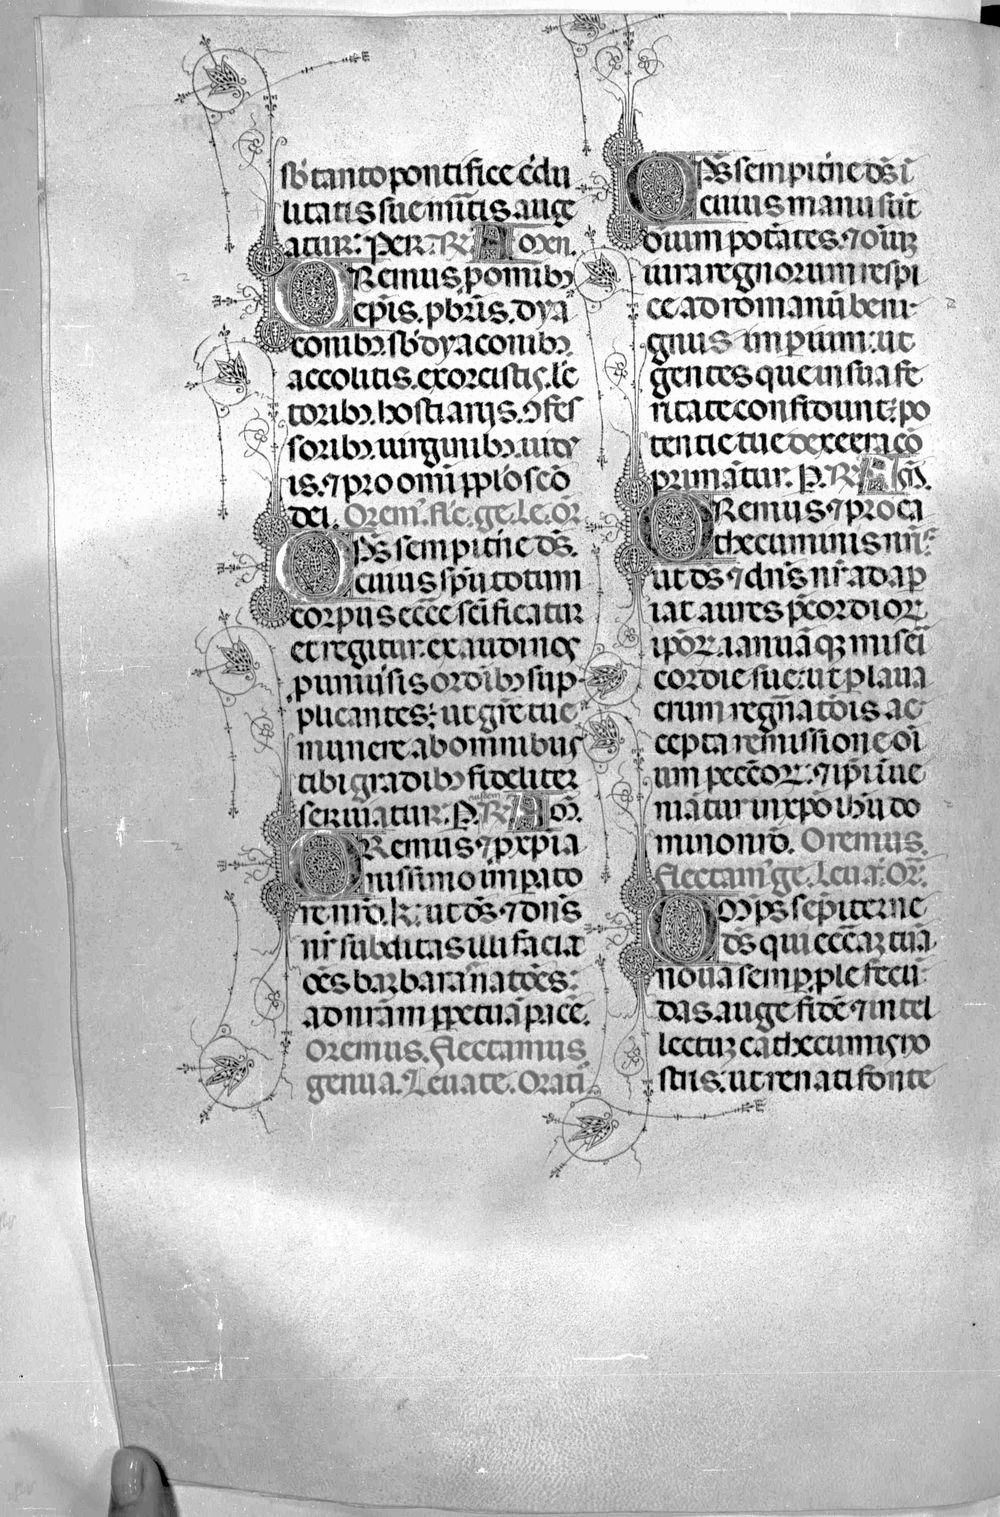 sb tanto pontifice c̄du
litatis sue mitis auge
atur: Per. R̃ Amen.
Oremus, pomibꝫ
epis. pbris. dya
conibꝫ. sb dyaconibꝫ.
accolitis. exorcistis. le
toribꝫ. hostiarijs. ꝯfes
soribꝫ. uirginibꝫ. uidu
is. ⁊ pro omī pplo sco
dei. Orem᾽. flc̄. ge. le. or̄
Omps sempitn̄e ds̄.
cuius spū totum
corpus ecc̄e scīficatur
et regitur. exaudi nos
p uniūsis ordībꝫ sup
plicantes: ut gr̄e tue
munere ab omnibus
tibi gradibꝫ fideliter
seruiatur: P. R̃ Am̄.
Oremus ⁊ p xpia
nissimo impato
re nr̄o. N. ut ds̄ ⁊ dn̄s
nr̄ subditas illi facia
oēs barbaras nat̄oes:
ad nr̄am ppetuā pacē.
Oremus. Flectamus
genua. Leuate. Orati
Omps sempitn̄e ds̄ ī
cuius manu sūt
oīum potātes. ⁊ oīuꝫ
iura regnorum respi
ce ad romanū beni
gnus impium: ut
gentes que in sua fe
ritate confidunt: po
tentie tue dextera cō
primātur. P. R̃ Am̄.
Oremus ⁊ pro ca
thecuminis nr̄is
ut ds̄ ⁊ dn̄s nr̄ adap
iat aures p̄cordioꝝ
ipōꝝ. ianuāqꝫ miseī
cordie sue: ut p laua
crum regn̄atōis ac
cepta remissione oī
um pecc̄oꝝ: ⁊ ip̄i īue
niātur in xp̄o ihū do
mino nr̄o. Oremus.
Flectam᾽ ge. Leuat. Or̄.
Omps sēpiterne
ds̄ qui ecc̄am tuā
noua semp ple fecū
das. auge fidē ⁊ intel
lectuꝫ cathecumis no
stris: ut renati fonte